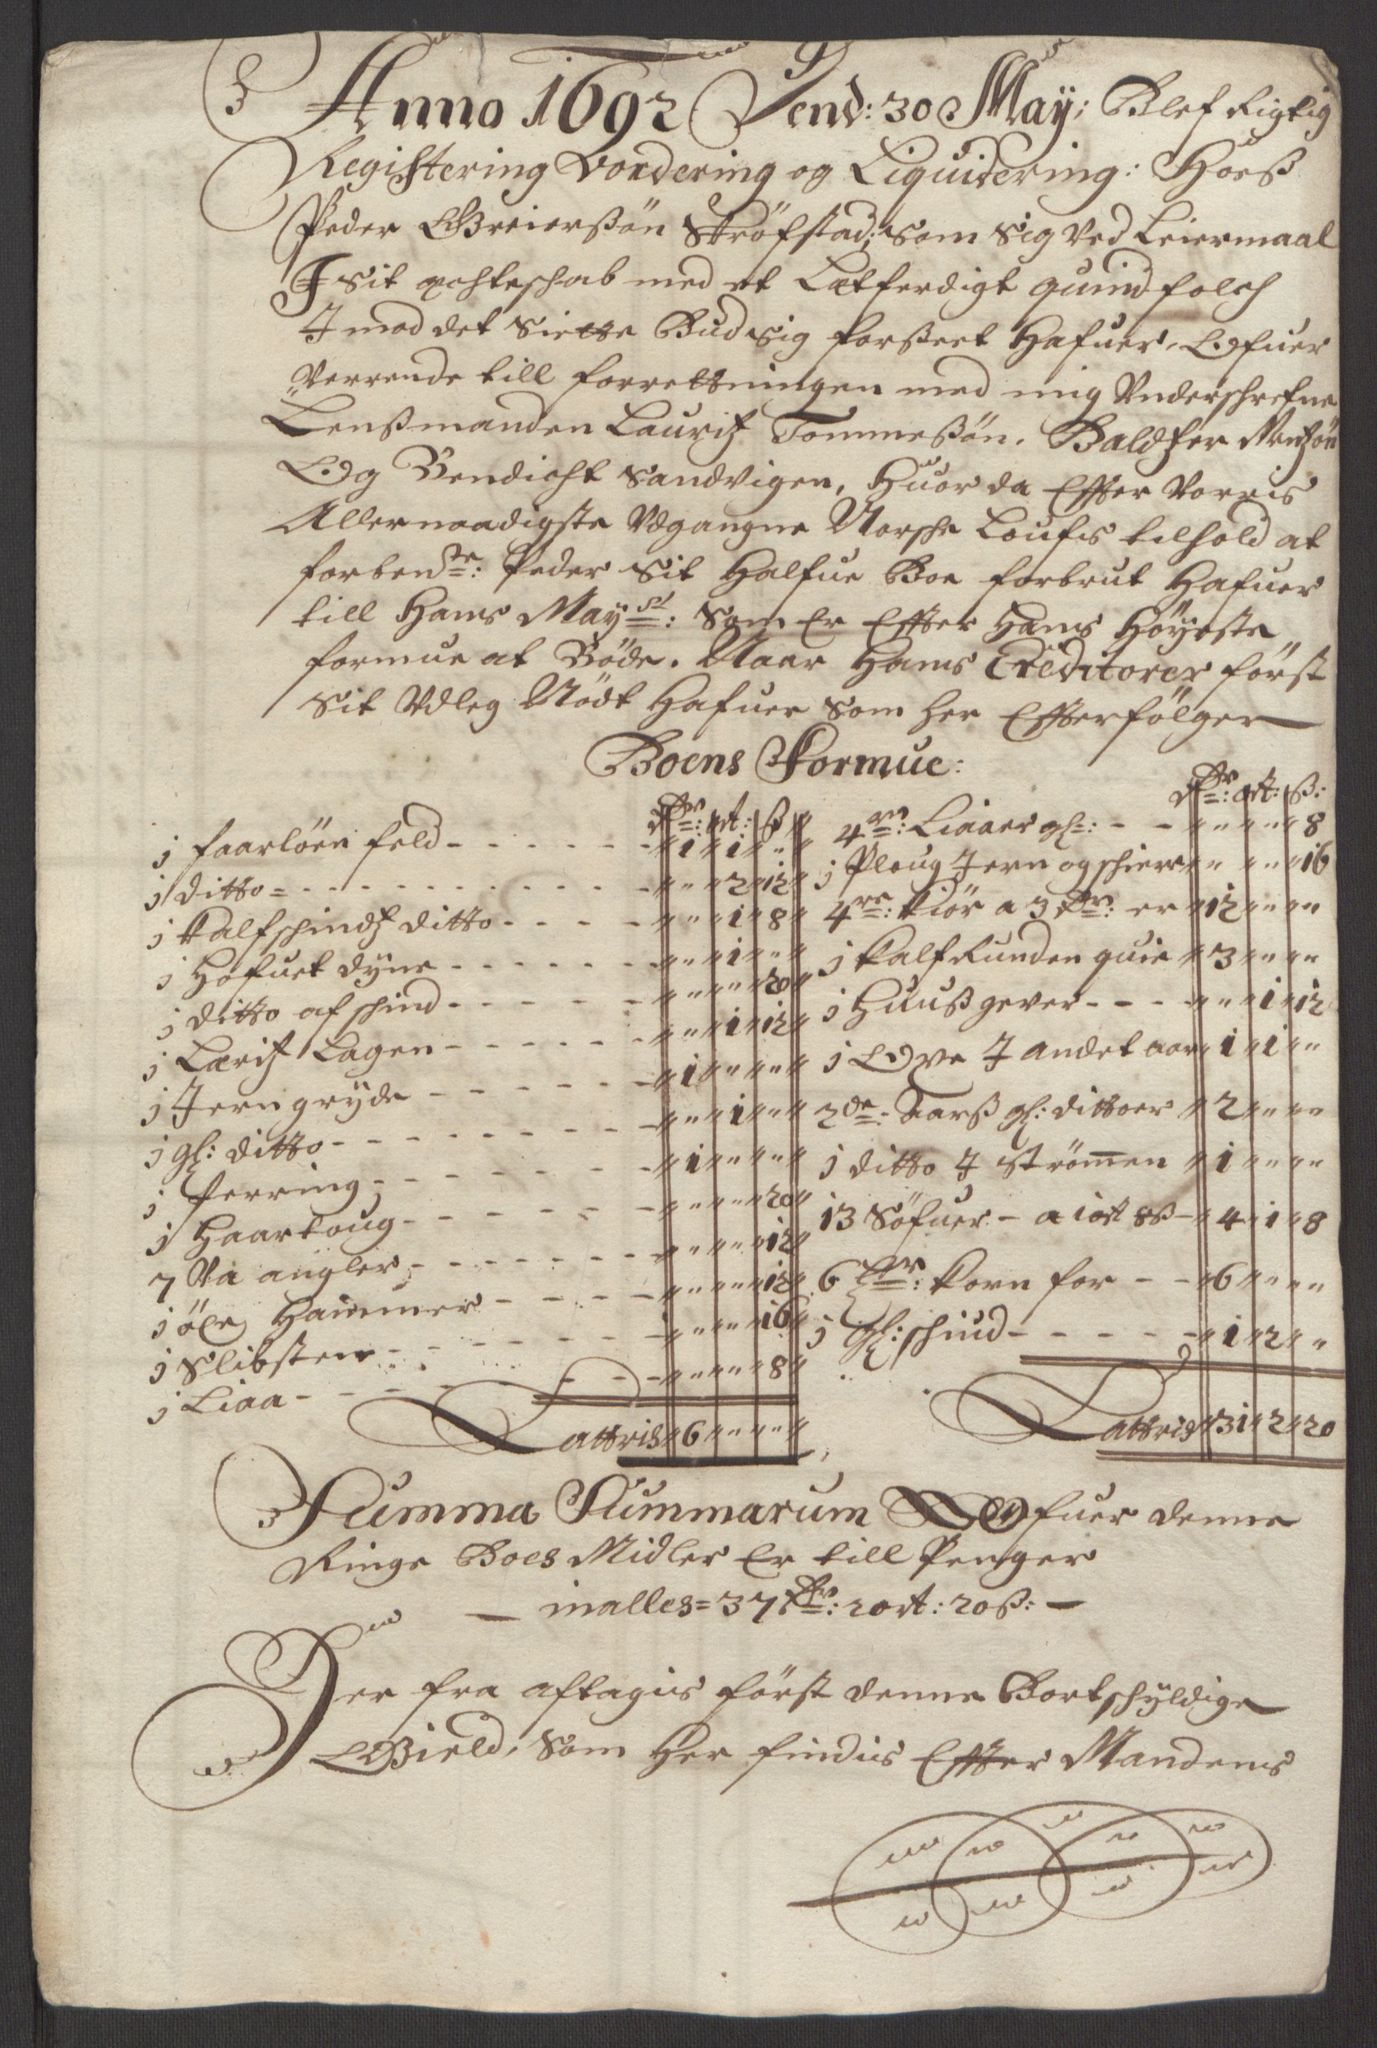 Anno 1692 Dend: 30 May: Blef Rigtig
Registering Vordering og Liquidering: Hoeß
Peder Greierßøn Strøfstad; som sig ved Leiermaal
I sit echteschab med et Letferdigt quindfolch
I mod det siette Bud sig forßeet hafuer, Ofuer
verrende till forrettningen med mig Underschrefne
Lenßmanden Lauritz Tommeßøn. Baldtzer
Og Bendicht Sandvigen, huor da Effter Vorris
Allernaadigste Udgangne Norsche Loufs tilhold at
forbende: Peder sit halfue Boe forbrut hafuer
till Hans Mayst: som Er Effter hans høyeste
formue at Bøde. Naar hans Creditorer først
sit Udleg Nødt hafuer som her Effterfølger
Boens Formue:
Dr: ort: ß
j faarløen feld - - - 1 " 1 " "
j ditto - - - " 2 " 12
j Kalfschindtz ditto - - - " 1 " 8
j Hofuet dyne - - - " 1 " "
j ditto af schind - - - " " " 20
j Lerritz Lagen - - - " 1 " 12
j Jern gryde - - - 1 " " "
j gl: ditto - - - " 1 " "
j ferring - - - 1 " " "
j Haartoug - - - " " " 20
7 Va angler - - - " " " 12
j øxe Hammer - - - " " " 12
j Slibsten - - - " " " 16
j Liaa - - - " " " 8
Lattris 6 " " "
Dr: ort: ß:
4re: Liaaer gl: - - " " " 8
j Ploug Jern og schier " " " 16
4re: Kiør a 3 Dr: er 12 " " "
j Kalf Runden quie 3 " " "
j Huuß gever - - - " 1 " 12
j Oxe I andet aar 1 " 1 " "
2de Aarß gl: dittoer 2 " " "
j ditto I strømen 1 " " "
13 Søfuer - a 1 ort 8ß - 4 " 1 " 8
6 tr: Korn for - - 6 " " "
j gl: schiud - - - 1 " 2 " "
Lattris 31 " 2 " 20
Summa Summarum Ofuer denne
Ringe Boes Midler Er till Penger
- inalles = 37 Dr: 2 ort: 20ß: -
Der fra aftagis først denne Bortschyldige
Gield, som her findis Effter Mandens